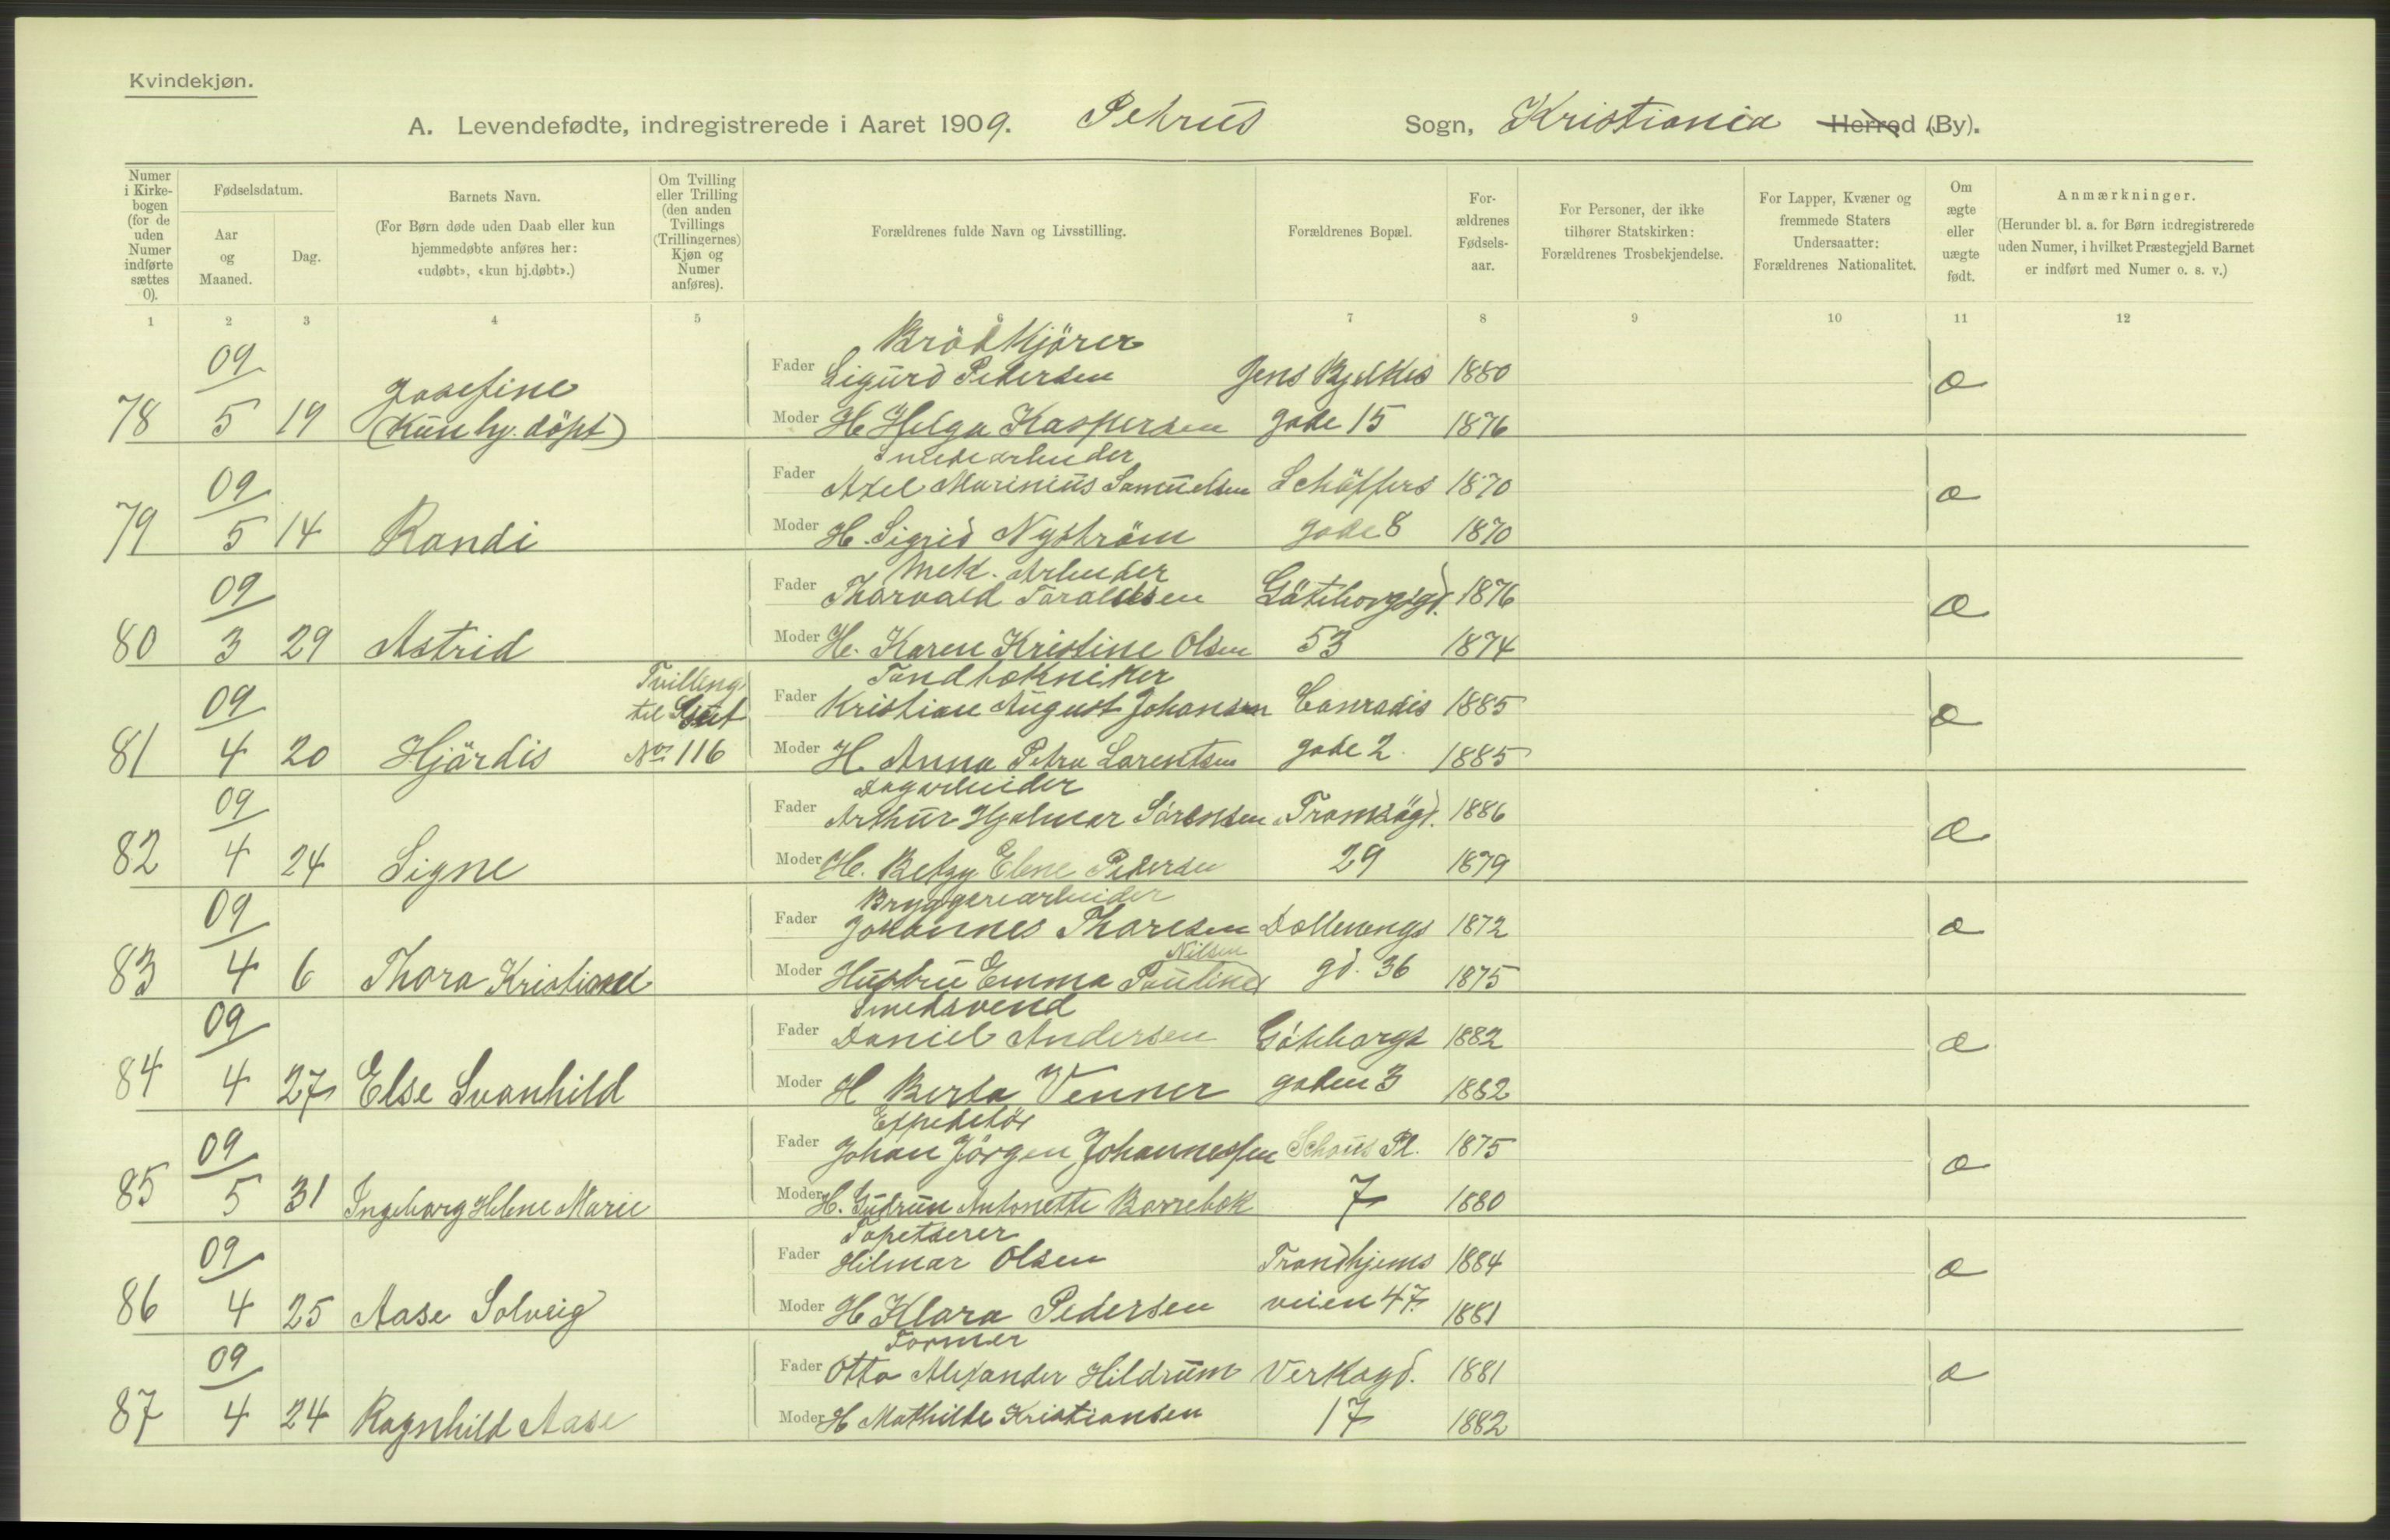 Kvindekjøn.
A. Levendefødte, indregistrerede i Aaret 1909. Petrus Sogn, Kristiania Herred (By).
Numer i Kirkebogen (for de uden Numer indførte sættes 0).
Fødselsdatum.
Aar og Maaned.
Dag.
Barnets Navn.
(For Børn døde uden Daab eller kun hjemmedøbte anføres her: «udøbt», «kun hj.døbt».)
Om Tvilling eller Trilling (den anden Tvillings (Trillingernes) Kjøn og Numer anføres).
Forældrenes fulde Navn og Livsstilling.
Forældrenes Bopæl.
Forældrenes Fødselsaar.
For Personer, der ikke tilhører Statskirken: Forældrenes Trosbekjendelse.
For Lapper, Kvæner og fremmede Staters Undersaatter: Forældrenes Nationalitet.
Om ægte eller uægte født.
Anmærkninger.
(Herunder bl. a. for Børn indregistrerede uden Numer, i hvilket Præstegjeld Barnet er indført med Numer o. s. v.)
1 2 3 4 5 6 7 8 9 10 11 12
Brödkjörer
09 Fader Sigurd Pedersen Jens Bjelkes 1880 æ
Josefine
78 5 19 (Kun hj. döpt) Moder H Helga Kaspersen gade 15 1876
Smedearbeider
09 Fader Axel Marinius Samuelsen Schöffers 1870 æ
79 5 14 Randi Moder H. Sigrid Nyström gade 8 1870
Mek. Arbeider
09 Fader Thorvald Taraldsen Göteborgsgd. 1876 æ
80 3 29 Astrid Moder H. Karen Kristine Olsen 53 1874
Tvilling Tandtekniker
09 til Gut Fader Kristian August Johansen Conradis 1885 æ
81 4 20 Hjördis No 116 Moder H. Anna Petra Lorentsen gade 2. 1885
Dagarbeider
09 Fader Arthur Hjalmar Sörensen Tromsögd. 1886 æ
82 4 24 Signe Moder H. Betzy Elene Pedersen 29 1879
Bryggeriarbeider
09 Fader Johannes Thoresen Dælenengs 1872 æ
Nilsen
83 4 6 Thora Kristiane Moder Hustru Emma Pauline gd. 36 1875
Smedsvend
09 Fader Daniel Andersen Göteborgs 1882 æ
84 4 27 Else Svanhild Moder H Berta Venner gaden 3 1882
Expeditör
09 Fader Johan Jörgen Johannessen Schous Pl. 1875 æ
85 5 31 Ingeborg Helene Marie Moder H. Gudrun Antonette Borrebæk 7 1880
Tapetserer
09 Fader Hilmar Olsen Trondhjems 1884 æ
86 4 25 Aase Solveig Moder H Klara Pedersen veien 47 1881
Former
09 Fader Otto Alexander Hildrum Verksgd. 1881 æ
87 4 24 Ragnhild Aase Moder H Mathilde Kristiansen 17 1882